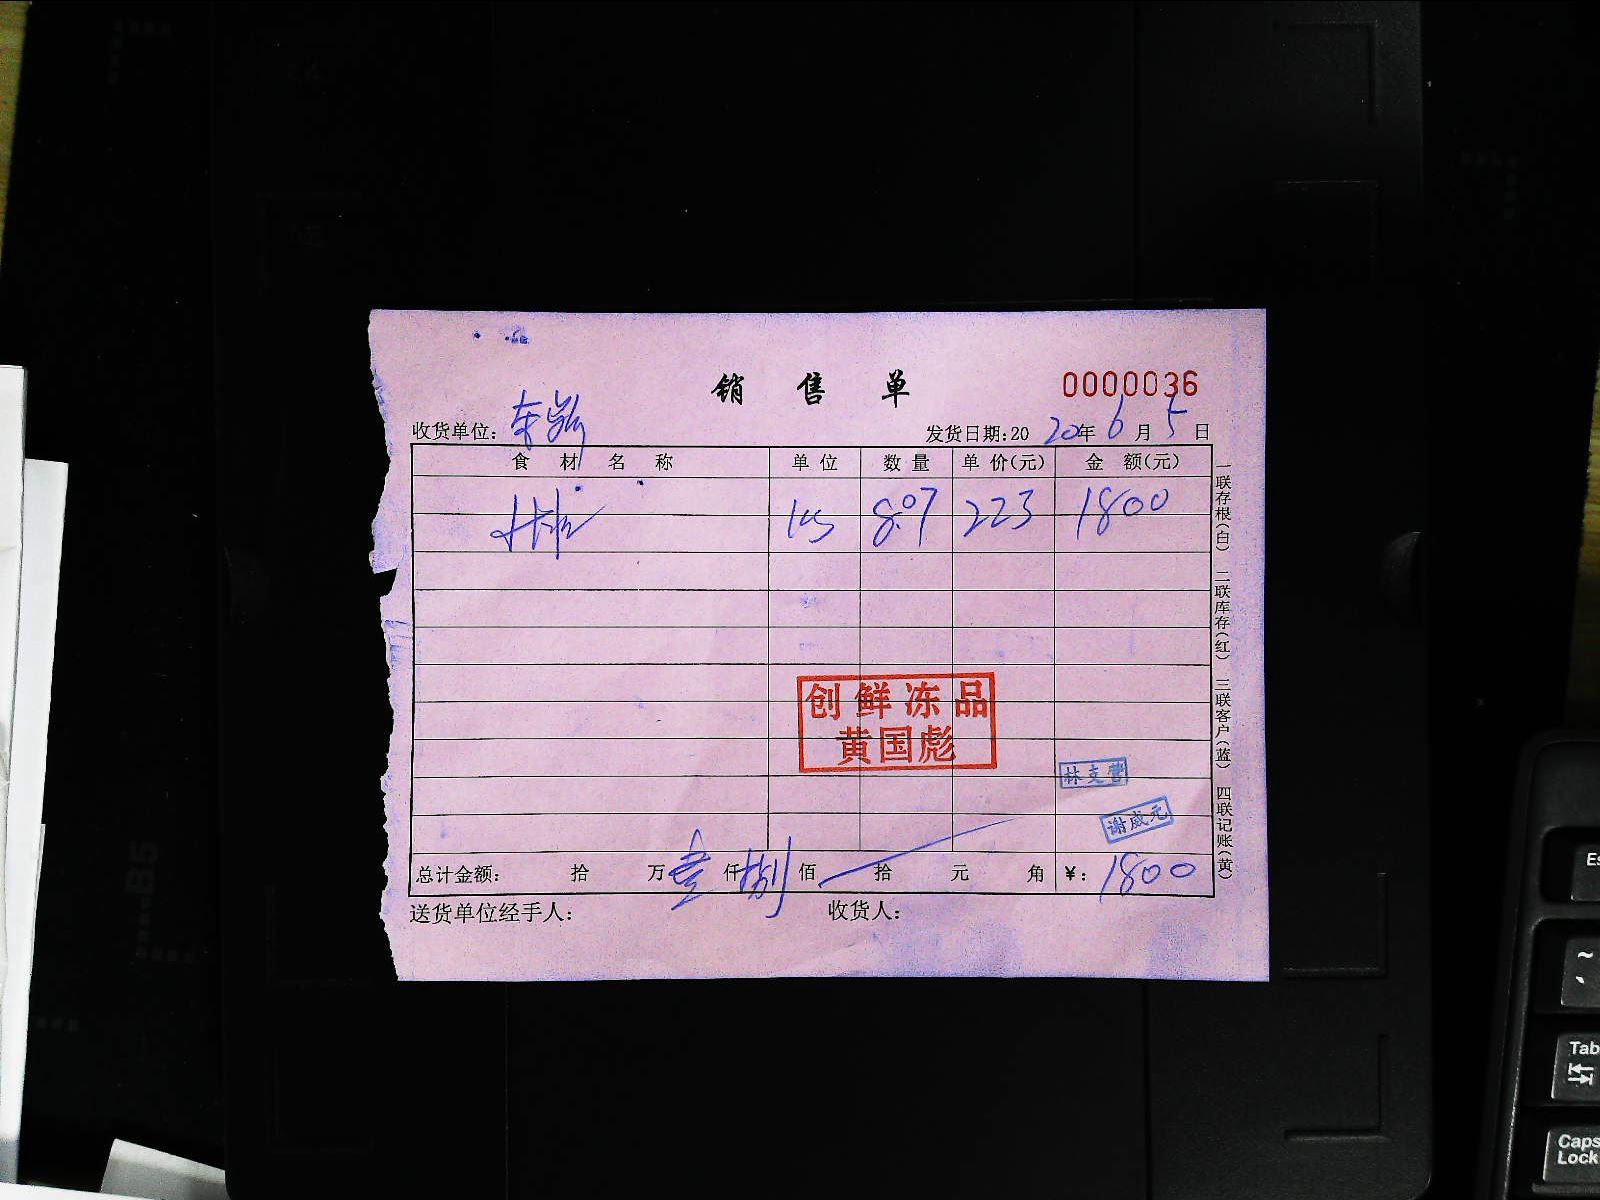 销售单 0000036
收货单位: 发货日期:2020年6月5日
食材名称 单位 数量 单价(元) 金额(元)
8.07 223 1800
创鲜冻品
黄国彪
林支营
谢威元
总计金额: 拾 万壹仟捌佰 拾 元 角 ¥:1800
送货单位经手人: 收货人:
一联存根(白) 二联库存(红) 三联客户(蓝) 四联记账(黄)
Es
~
Tab
Caps
Lock
B5